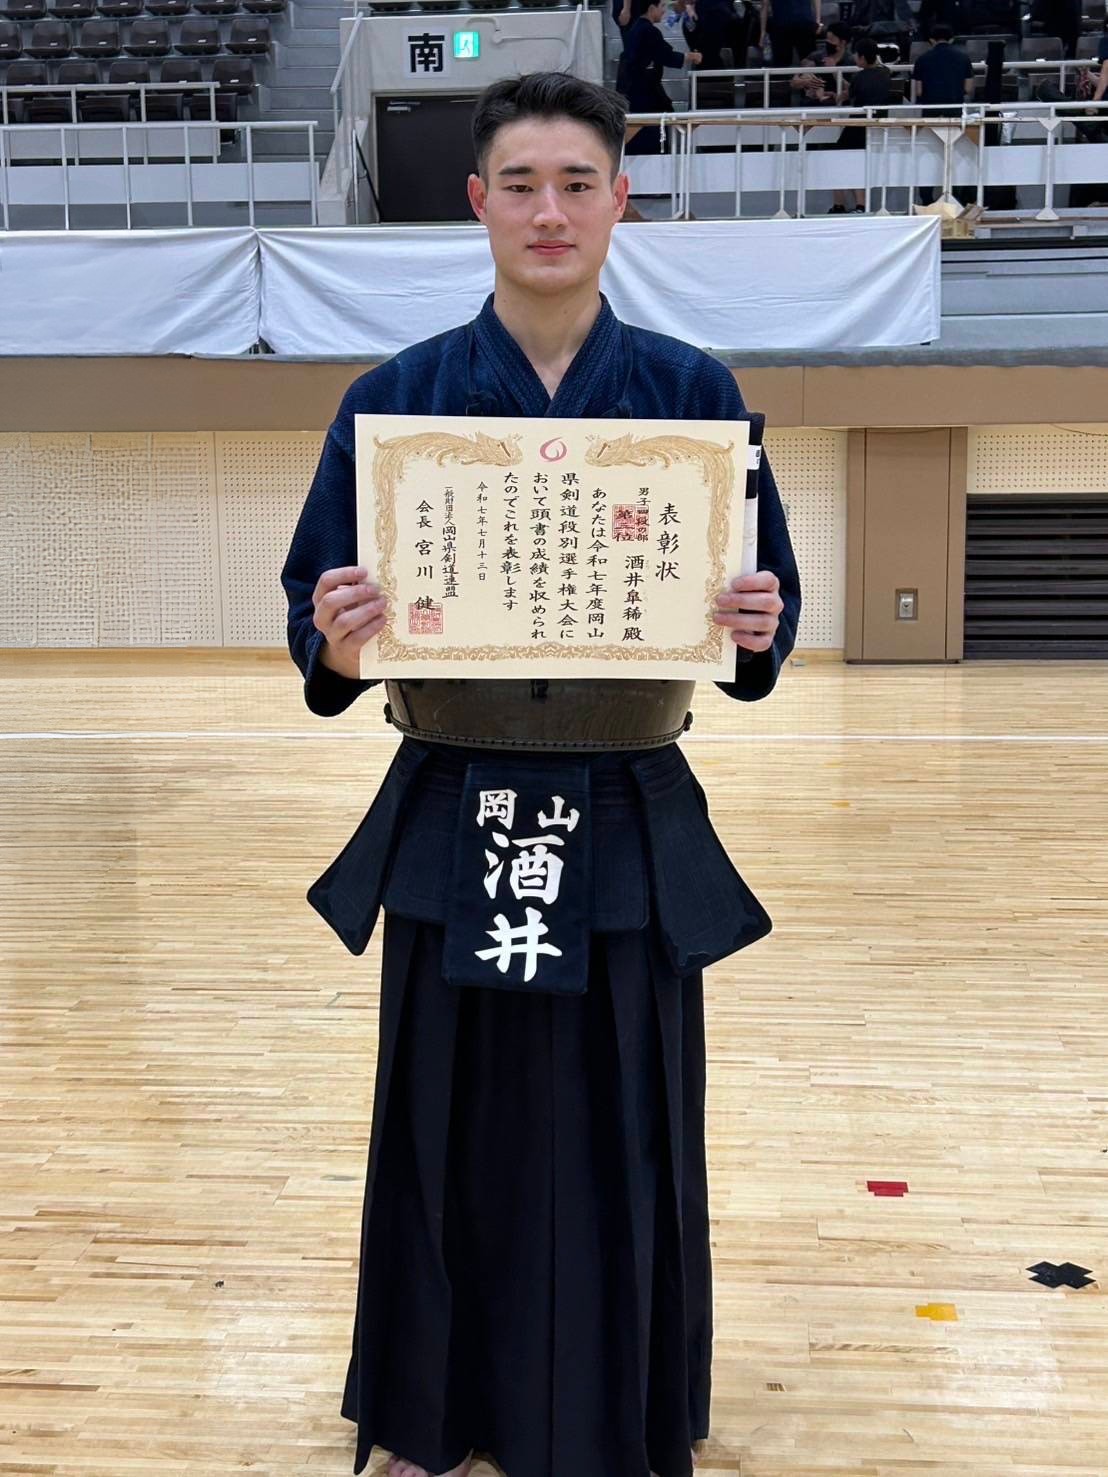 南
表彰状
男子四段の部
第三位
酒井皐稀殿
あなたは令和七年度岡山
県剣道段別選手権大会に
おいて頭書の成績を収められ
たのでこれを表彰します
令和七年七月十三日
一般財団法人岡山県剣道連盟
会長 宮川 健
岡山
酒井